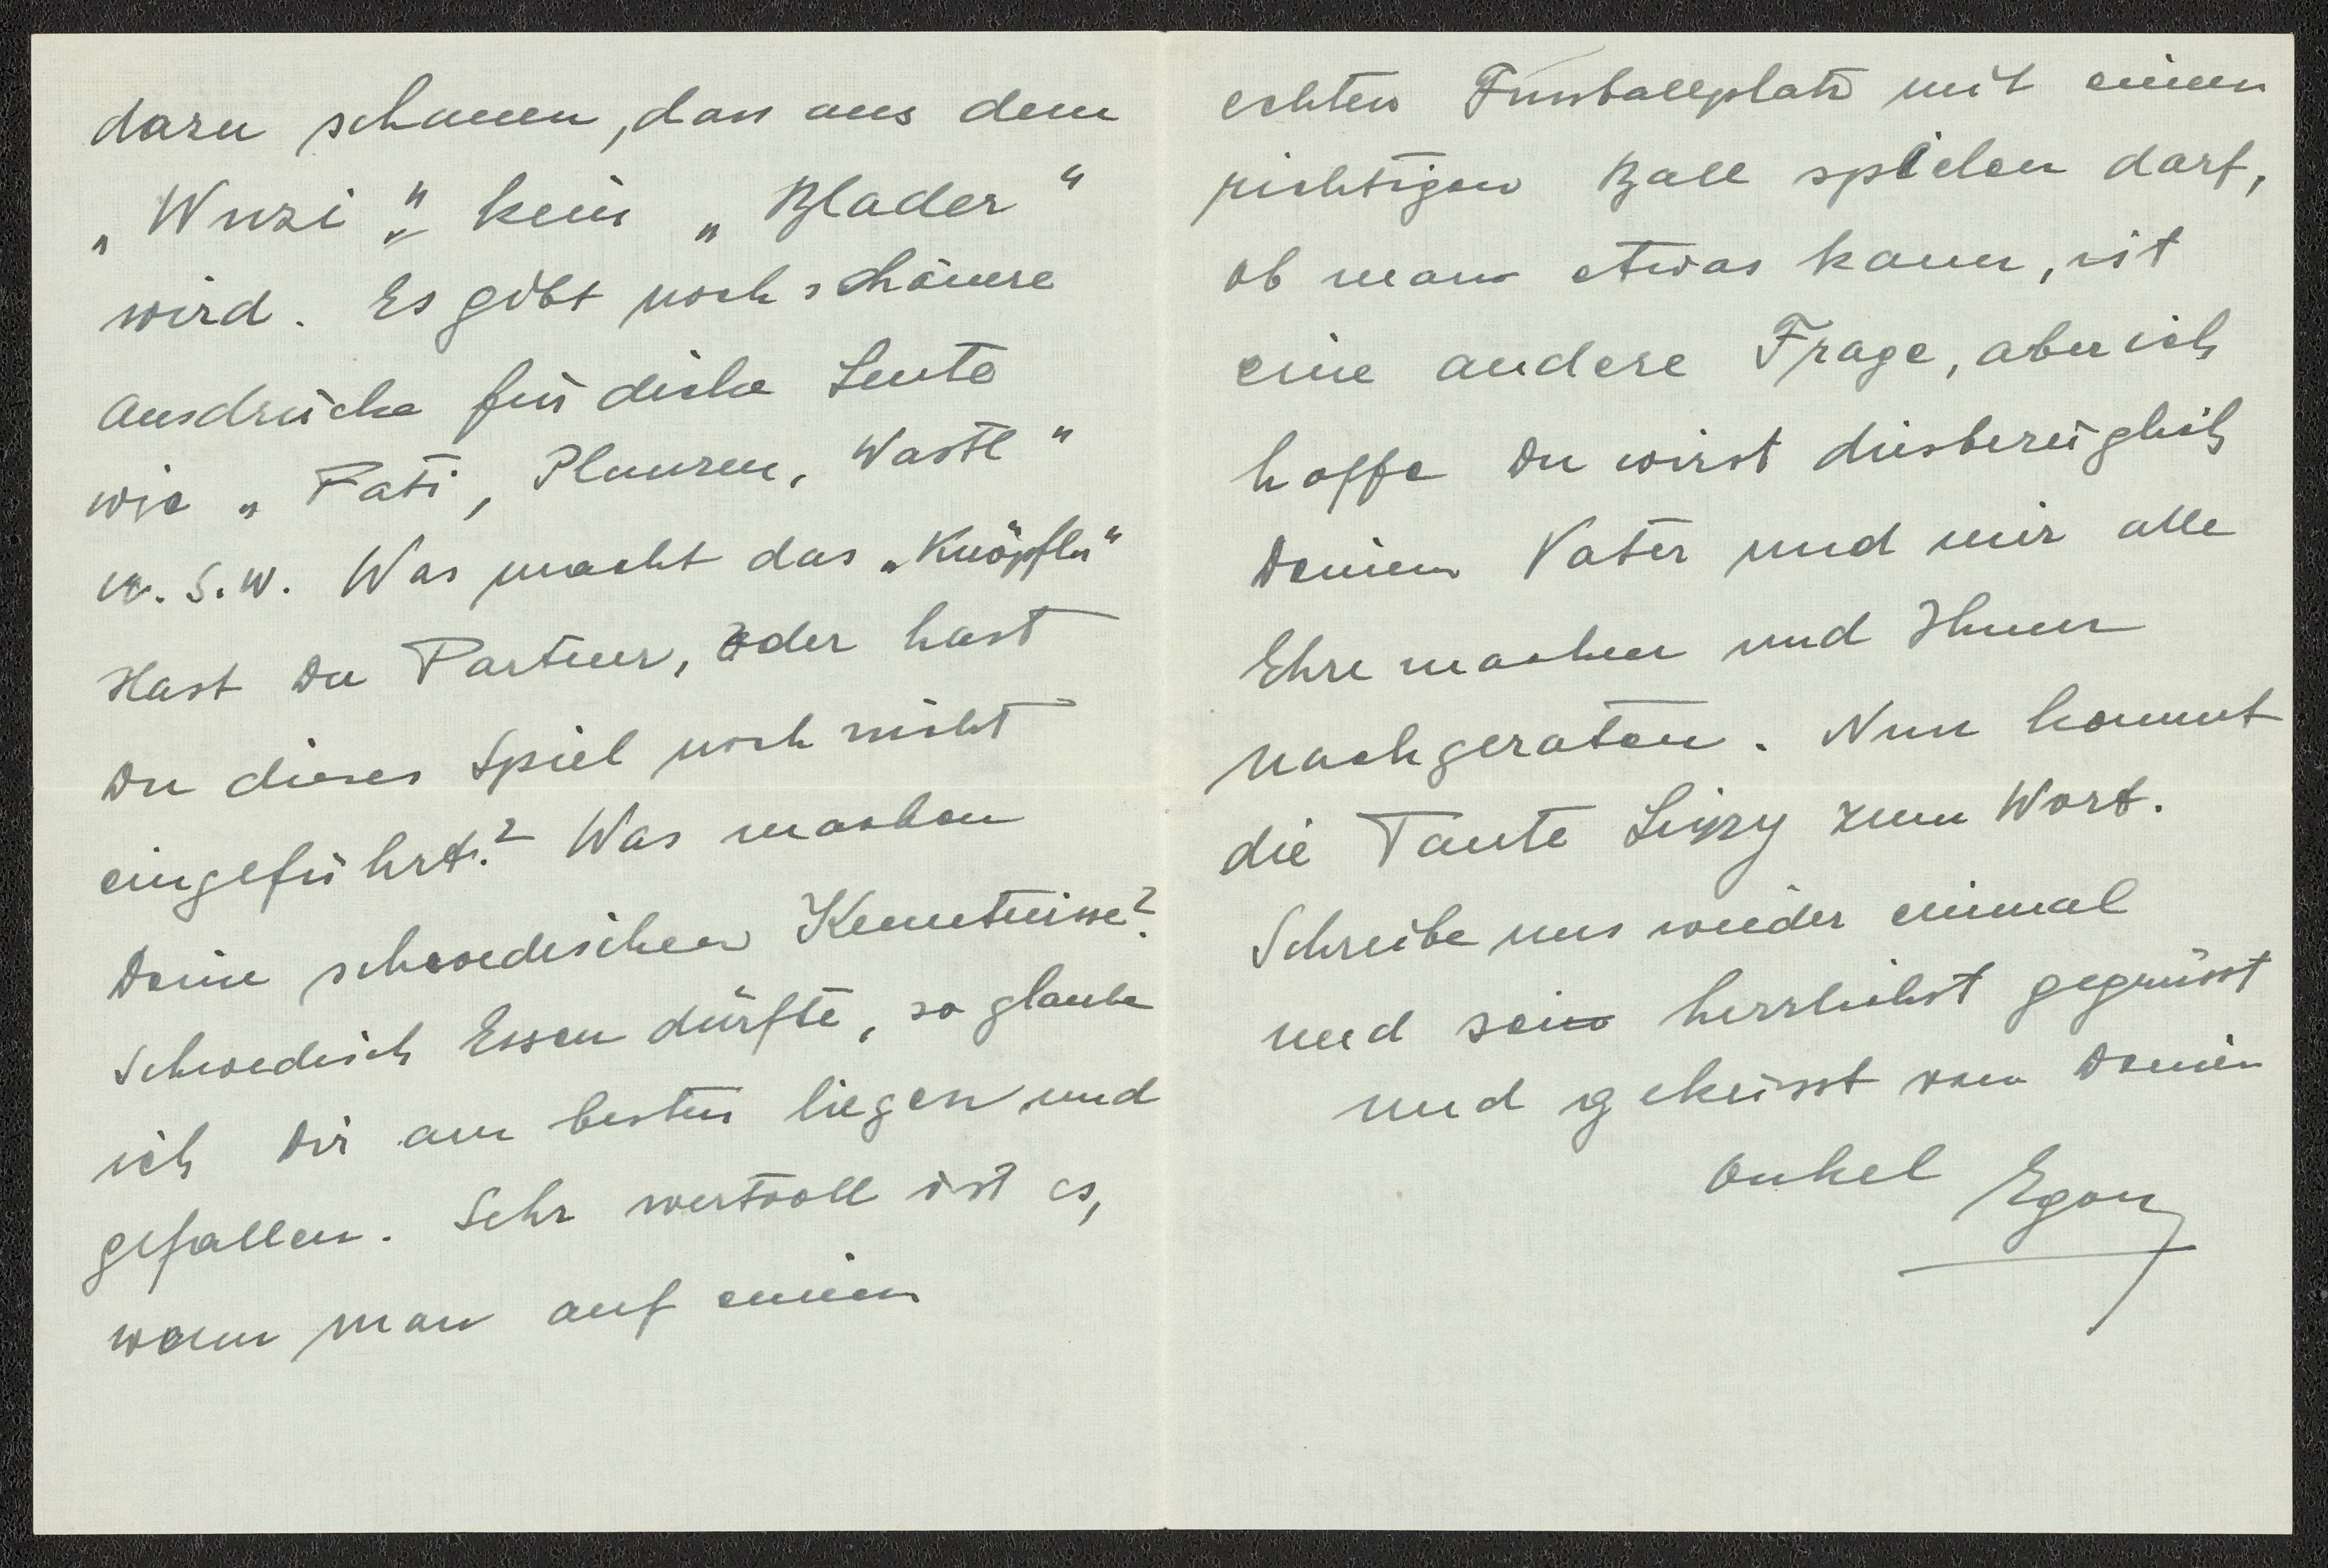 dazu schauen, dass aus dem
„Wuzi“ kein „Blader“
wird. Es gibt noch schönere
Ausdrücke für dicke Leute
wie „Fati, Plunzen, Wastl“
u. s. w. Was macht das „Knöpfln“
Hast Du Partner, oder hast
Du dieses Spiel noch nicht
eingeführt? Was machen
Deine schwedischen Kenntnisse?
Schwedisch Essen dürfte, so glaube
ich Dir am besten liegen und
gefallen. Sehr wertvoll ist es,
wenn man auf einem
echten Fussballplatz mit einem
richtigen Ball spielen darf,
ob man etwas kann, ist
eine andere Frage, aber ich
hoffe Du wirst diesbezüglich
Deinem Vater und mir alle
Ehre machen und Ihnen
nachgeraten. Nun kommt
die Tante Lizzy zum Wort.
Schreibe uns wieder einmal
und sei herzlichst gegrüsst
und geküsst von Deinem
Onkel Egon